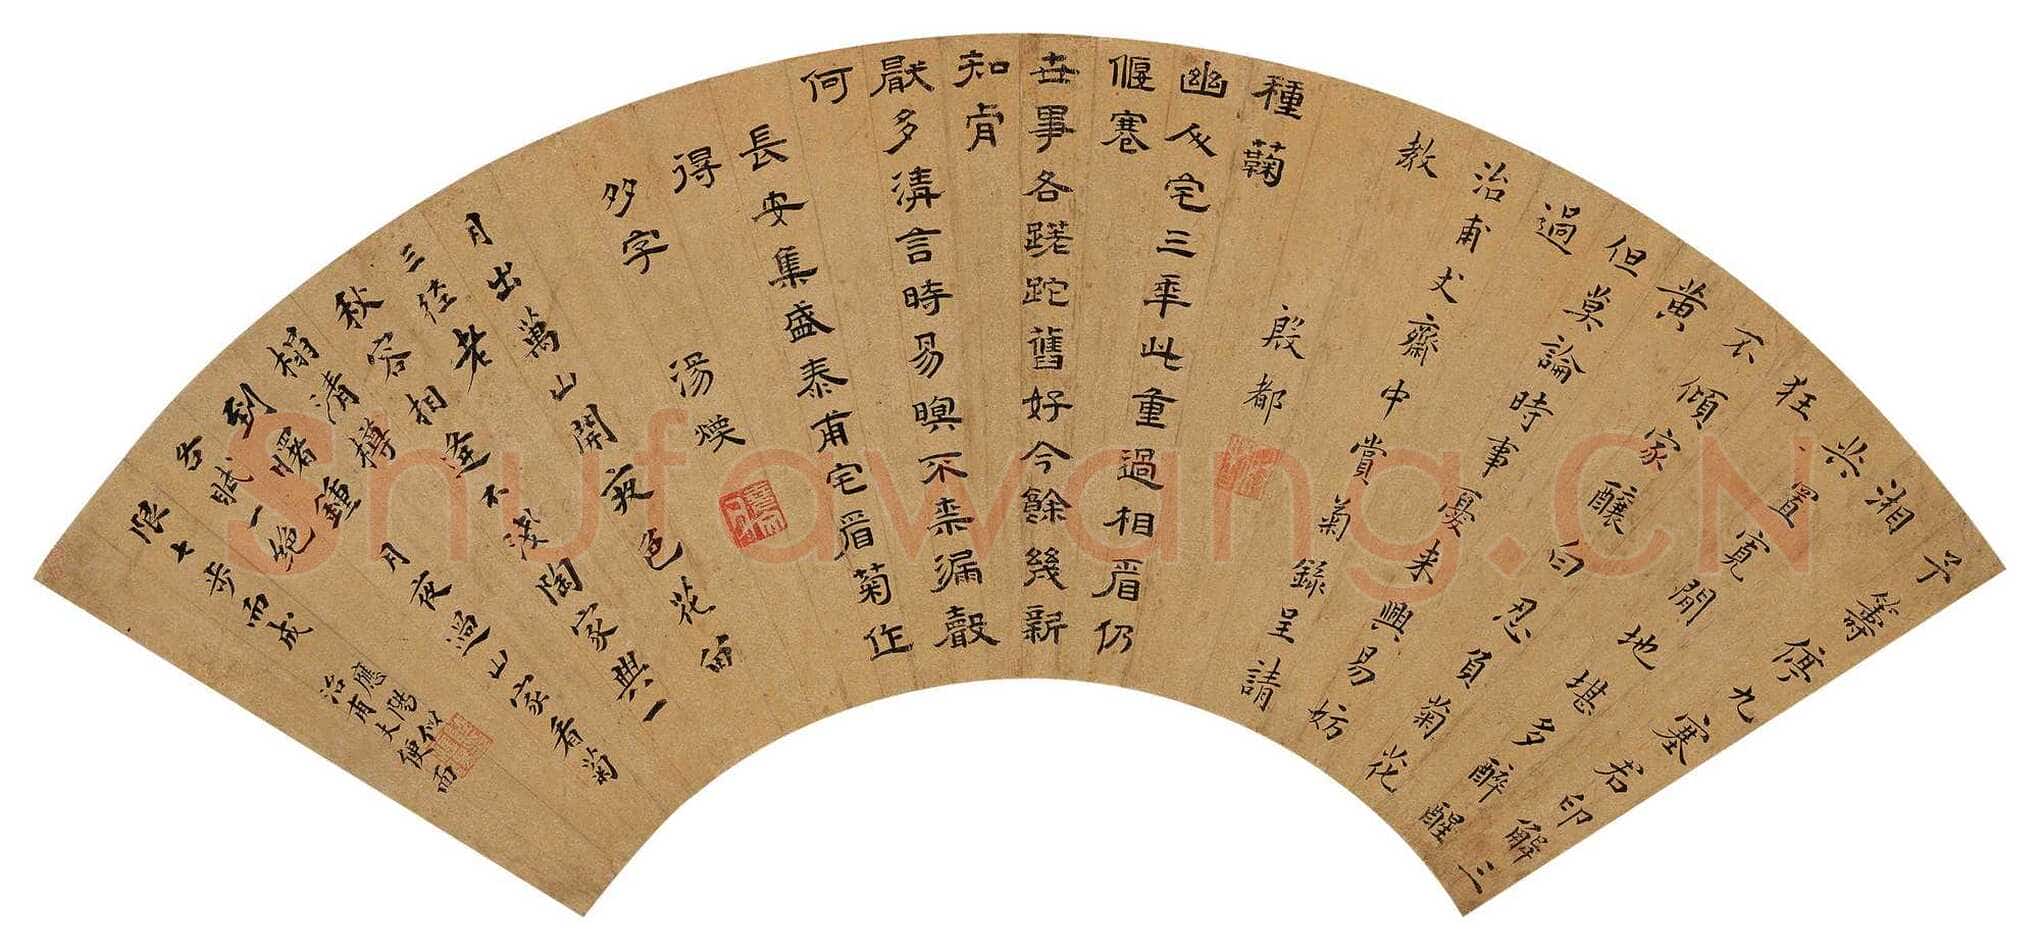 予籌停九塞君印解三
湘
共置寬閒地堪多醉醒
狂
不傾家釀白忍負菊花
黃
但莫論時事憂来興易妨
過
治甫丈齋中賞菊錄呈請
教
殷都
種菊
幽人宅三年此重過相看仍
偃蹇
世事各蹉跎舊好今餘幾新
知肯
厭多清言時易暝不柰漏聲
何
長安集盛泰甫宅看菊作
得
多字 湯煥
月出萬山開夜色花留
三徑老
秋容相逢不淺陶家興一
榻清樽
到曙鐘月夜過山家看菊
各賦一絕
限七步而成
應陽似
治甫大便面
Shufawang.CN